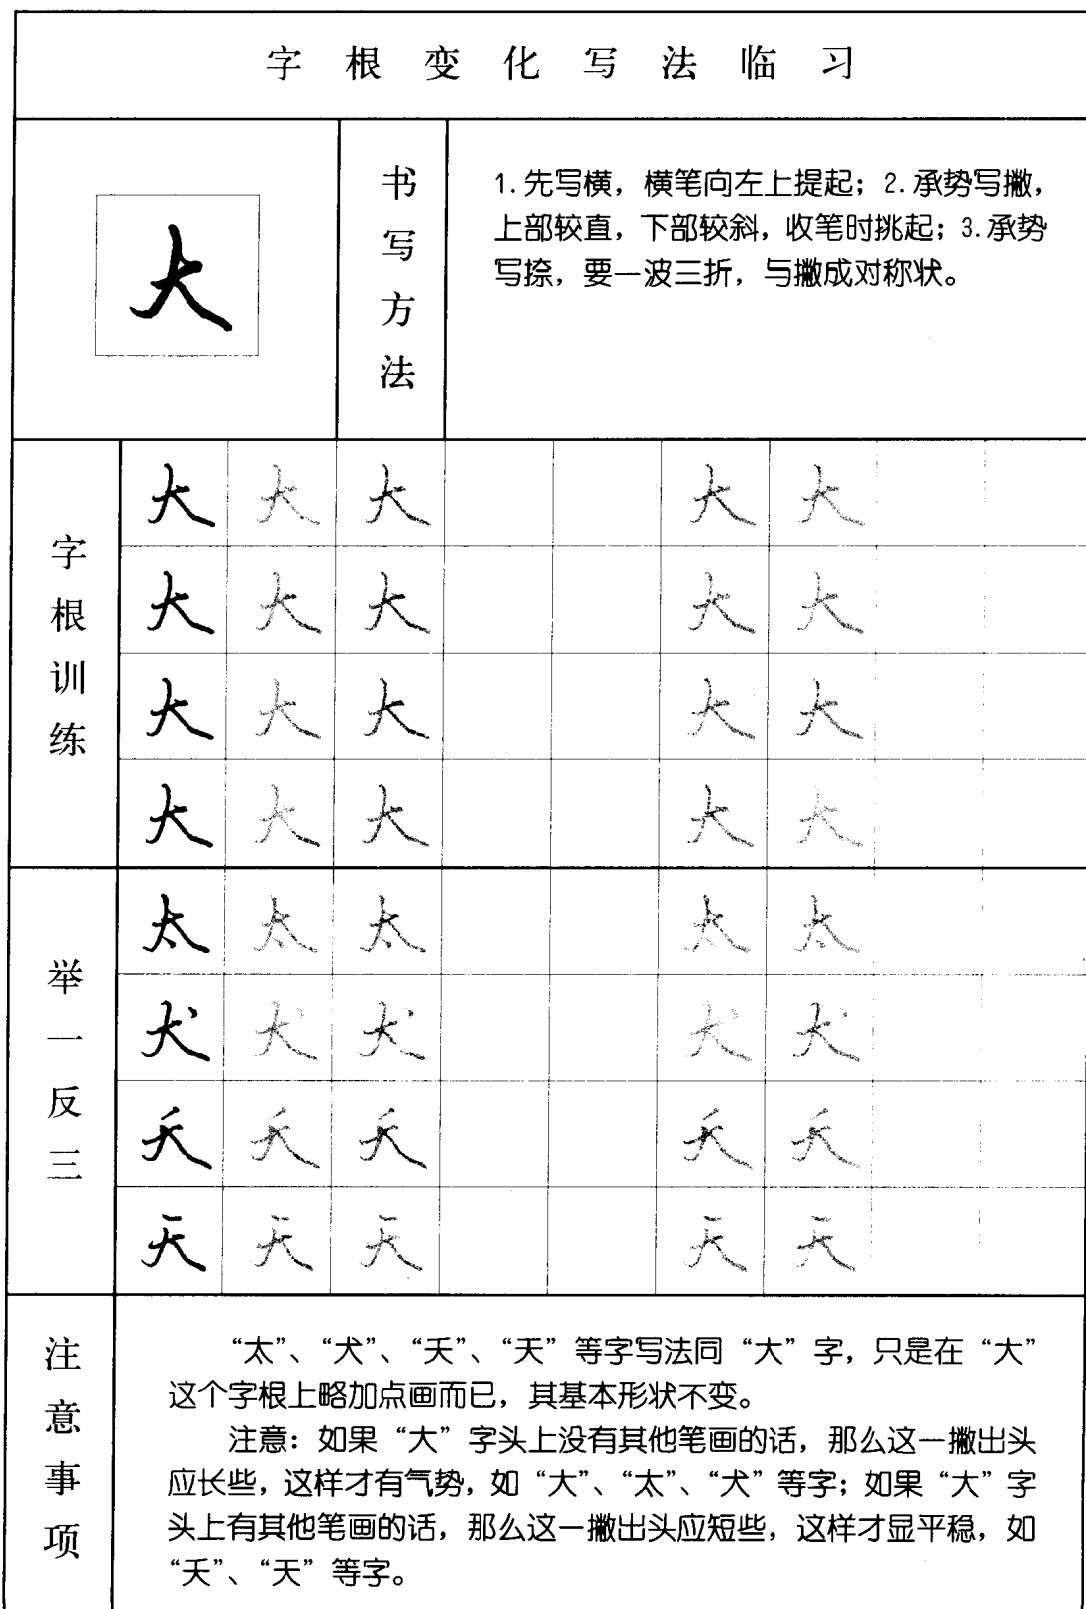 字根变化写法临习
大
书写方法
1.先写横，横笔向左上提起；2.承势写撇，
上部较直，下部较斜，收笔时挑起；3.承势
写捺，要一波三折，与撇成对称状。
字根训练
大 大 大 大 大
大 大 大 大 大
大 大 大 大 大
大 大 大 大 大
举一反三
太 太 太 太 太
犬 犬 犬 犬 犬
夭 夭 夭 夭 夭
天 天 天 天 天
注意事项
“太”、“犬”、“夭”、“天”等字写法同“大”字，只是在“大”
这个字根上略加点画而已，其基本形状不变。
注意：如果“大”字头上没有其他笔画的话，那么这一撇出头
应长些，这样才有气势，如“大”、“太”、“犬”等字；如果“大”字
头上有其他笔画的话，那么这一撇出头应短些，这样才显平稳，如
“夭”、“天”等字。